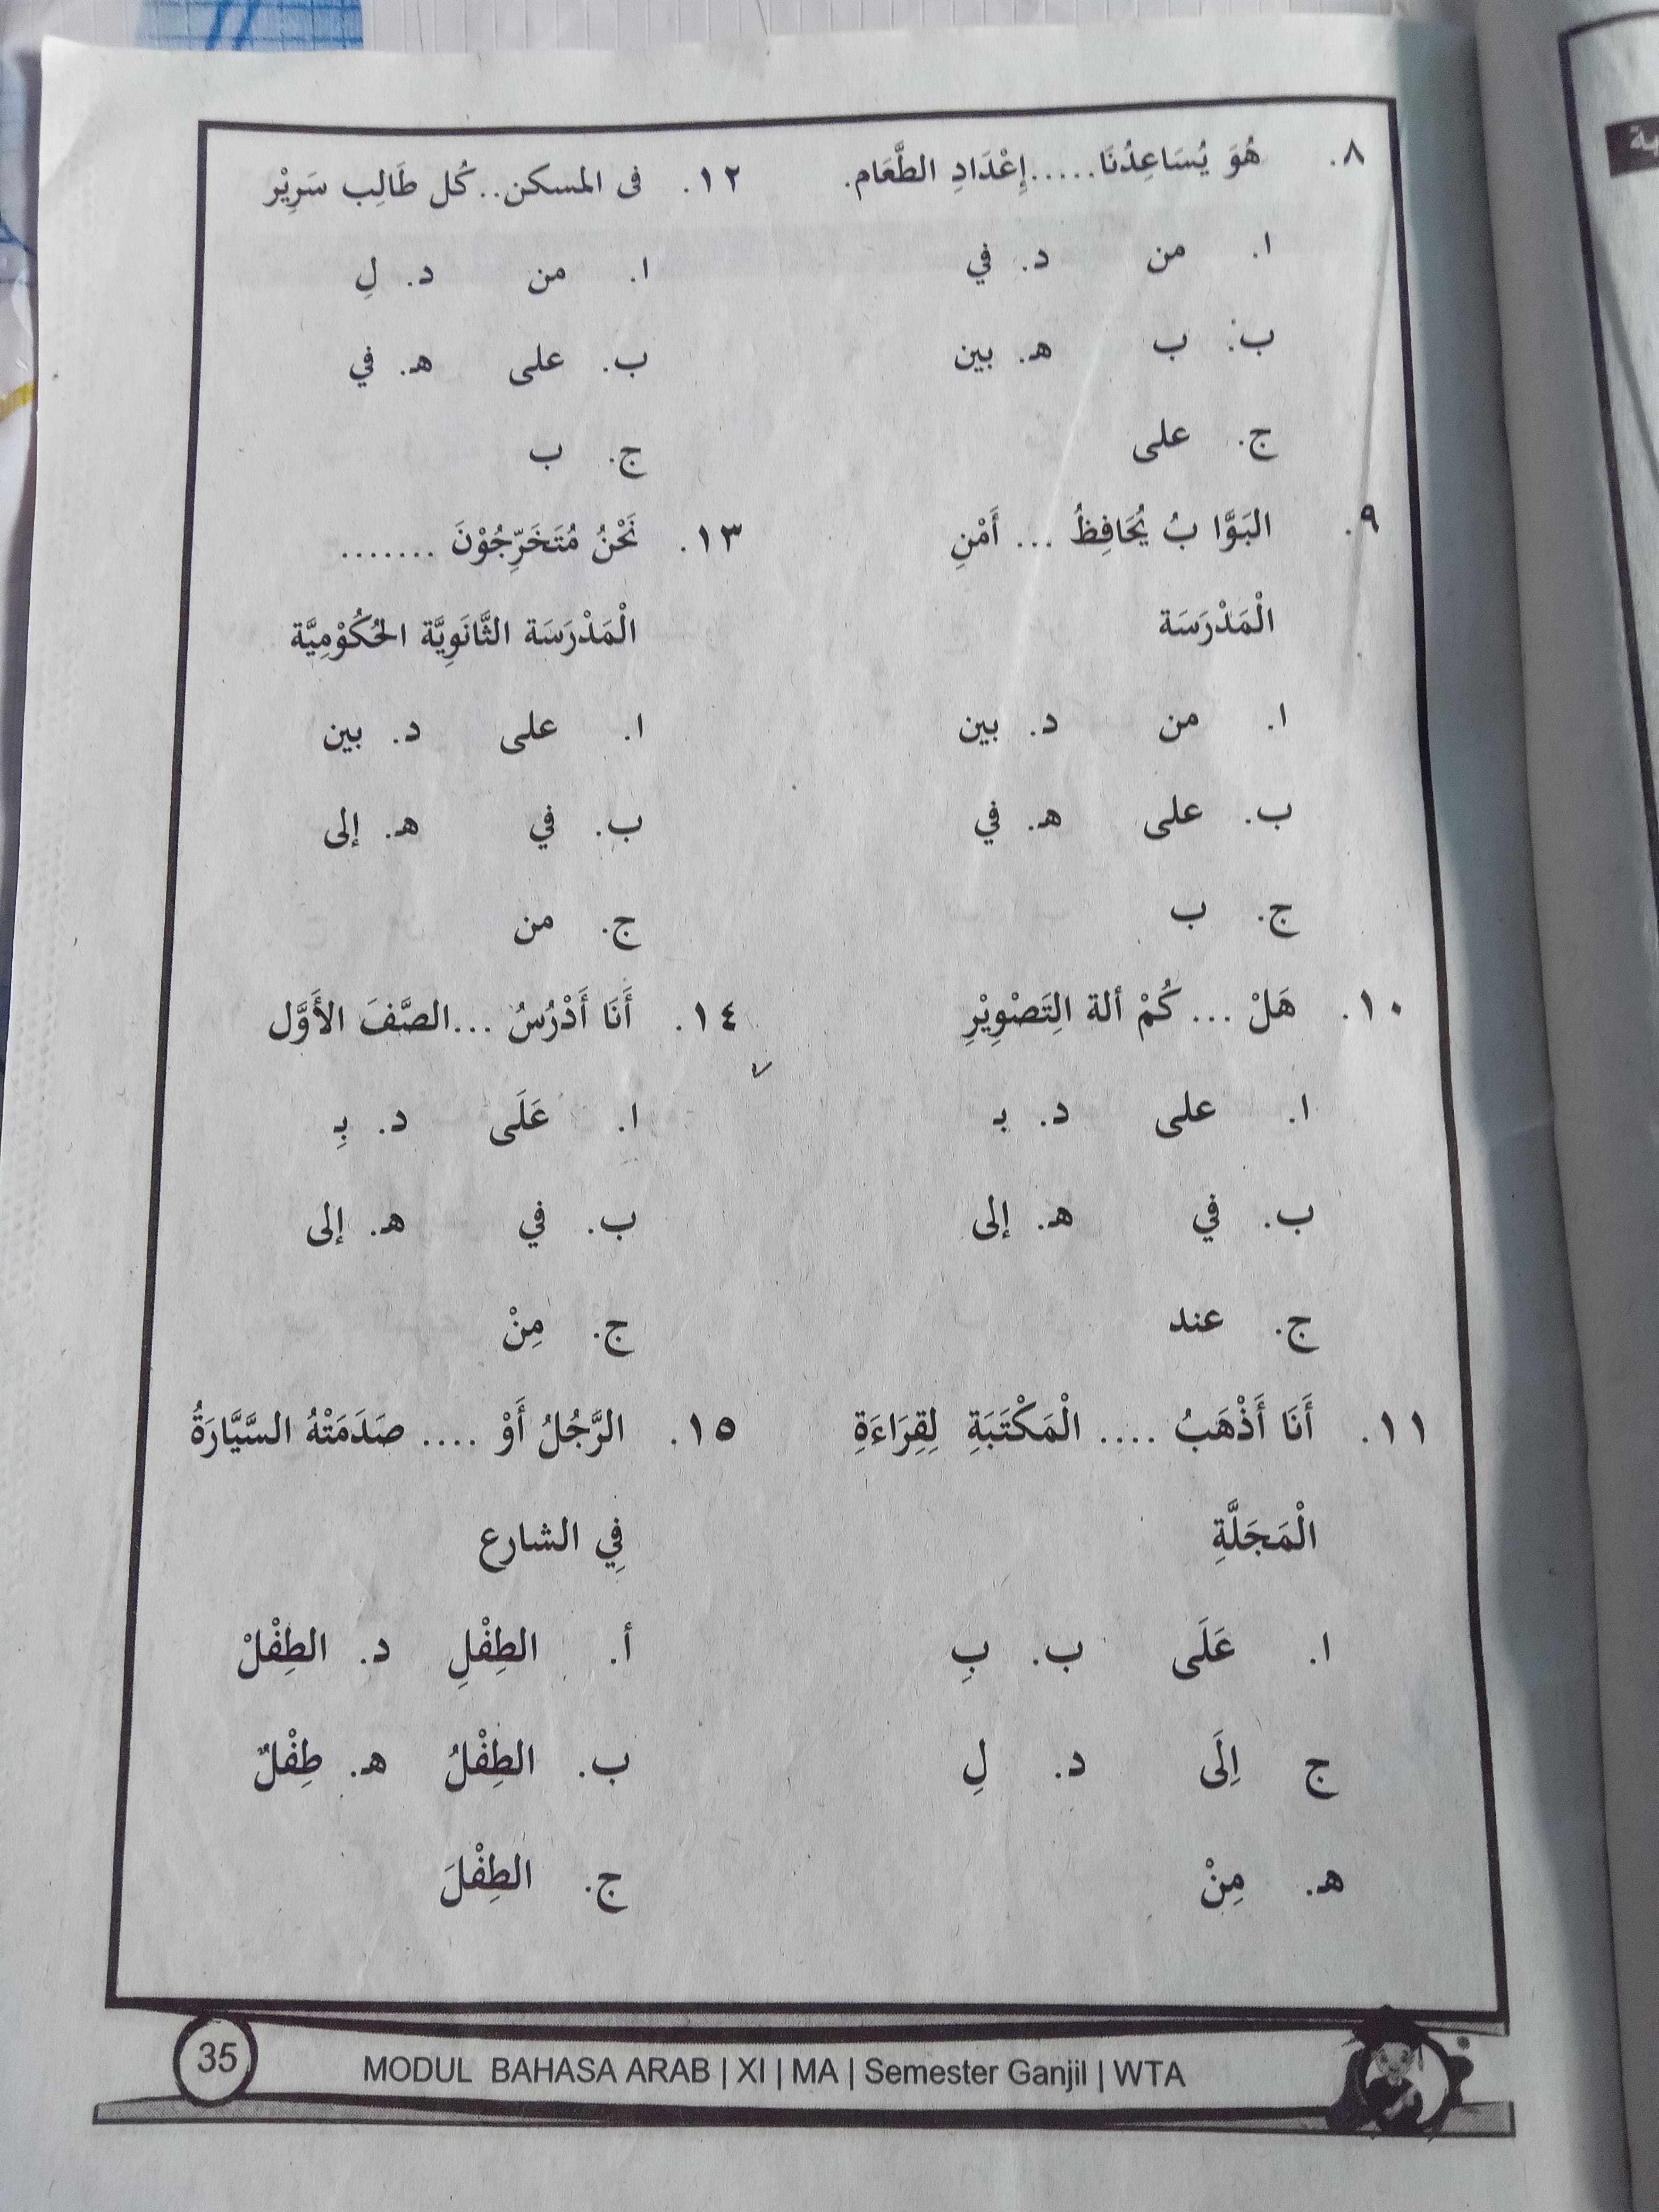 ٨. هُوَ يُسَاعِدُنَا.....إِعْدَادِ الطَّعَام.
ا. من د. في
ب. ب ه. بين
ج. على
٩. البَوَّا بُ يُحَافِظُ ... أَمْنِ
الْمَدْرَسَة
ا. من د. بين
ب. على ه. في
ج. ب
١٠. هَلْ ... كُمْ ألة الِتَصْوِيْرِ
ا. على د. بـ
ب. في ه. إلى
ج. عند
١١. أَنَا أَذْهَبُ .... الْمَكْتَبَةِ لِقِرَاءَةِ
الْمَجَلَّةِ
ا. عَلَى ب. بِ
ج إِلَى د. لِ
ه. مِنْ
١٢. فى المسكن..كُل طَالِب سَرِيْر
ا. من د. لِ
ب. على ه. في
ج. ب
١٣. نَحْنُ مُتَخَرِّجُوْنَ .......
الْمَدْرَسَة الثَّانَوِيَّة الحُكُوْمِيَّة
ا. على د. بين
ب. في ه. إلى
ج. من
١٤. أَنَا أَدْرُسُ ...الصَّفَ الأَوَّل
ا. عَلَى د. بِـ
ب. في ه. إلى
ج. مِنْ
١٥. الرَّجُلُ أَوْ .... صَدَمَتْهُ السَّيَّارَةُ
فِي الشارع
أ. الطِفْلِ د. الطِفْلْ
ب. الطِفْلُ ه. طِفْلٌ
ج. الطِفْلَ
35
MODUL BAHASA ARAB | XI | MA | Semester Ganjil | WTA